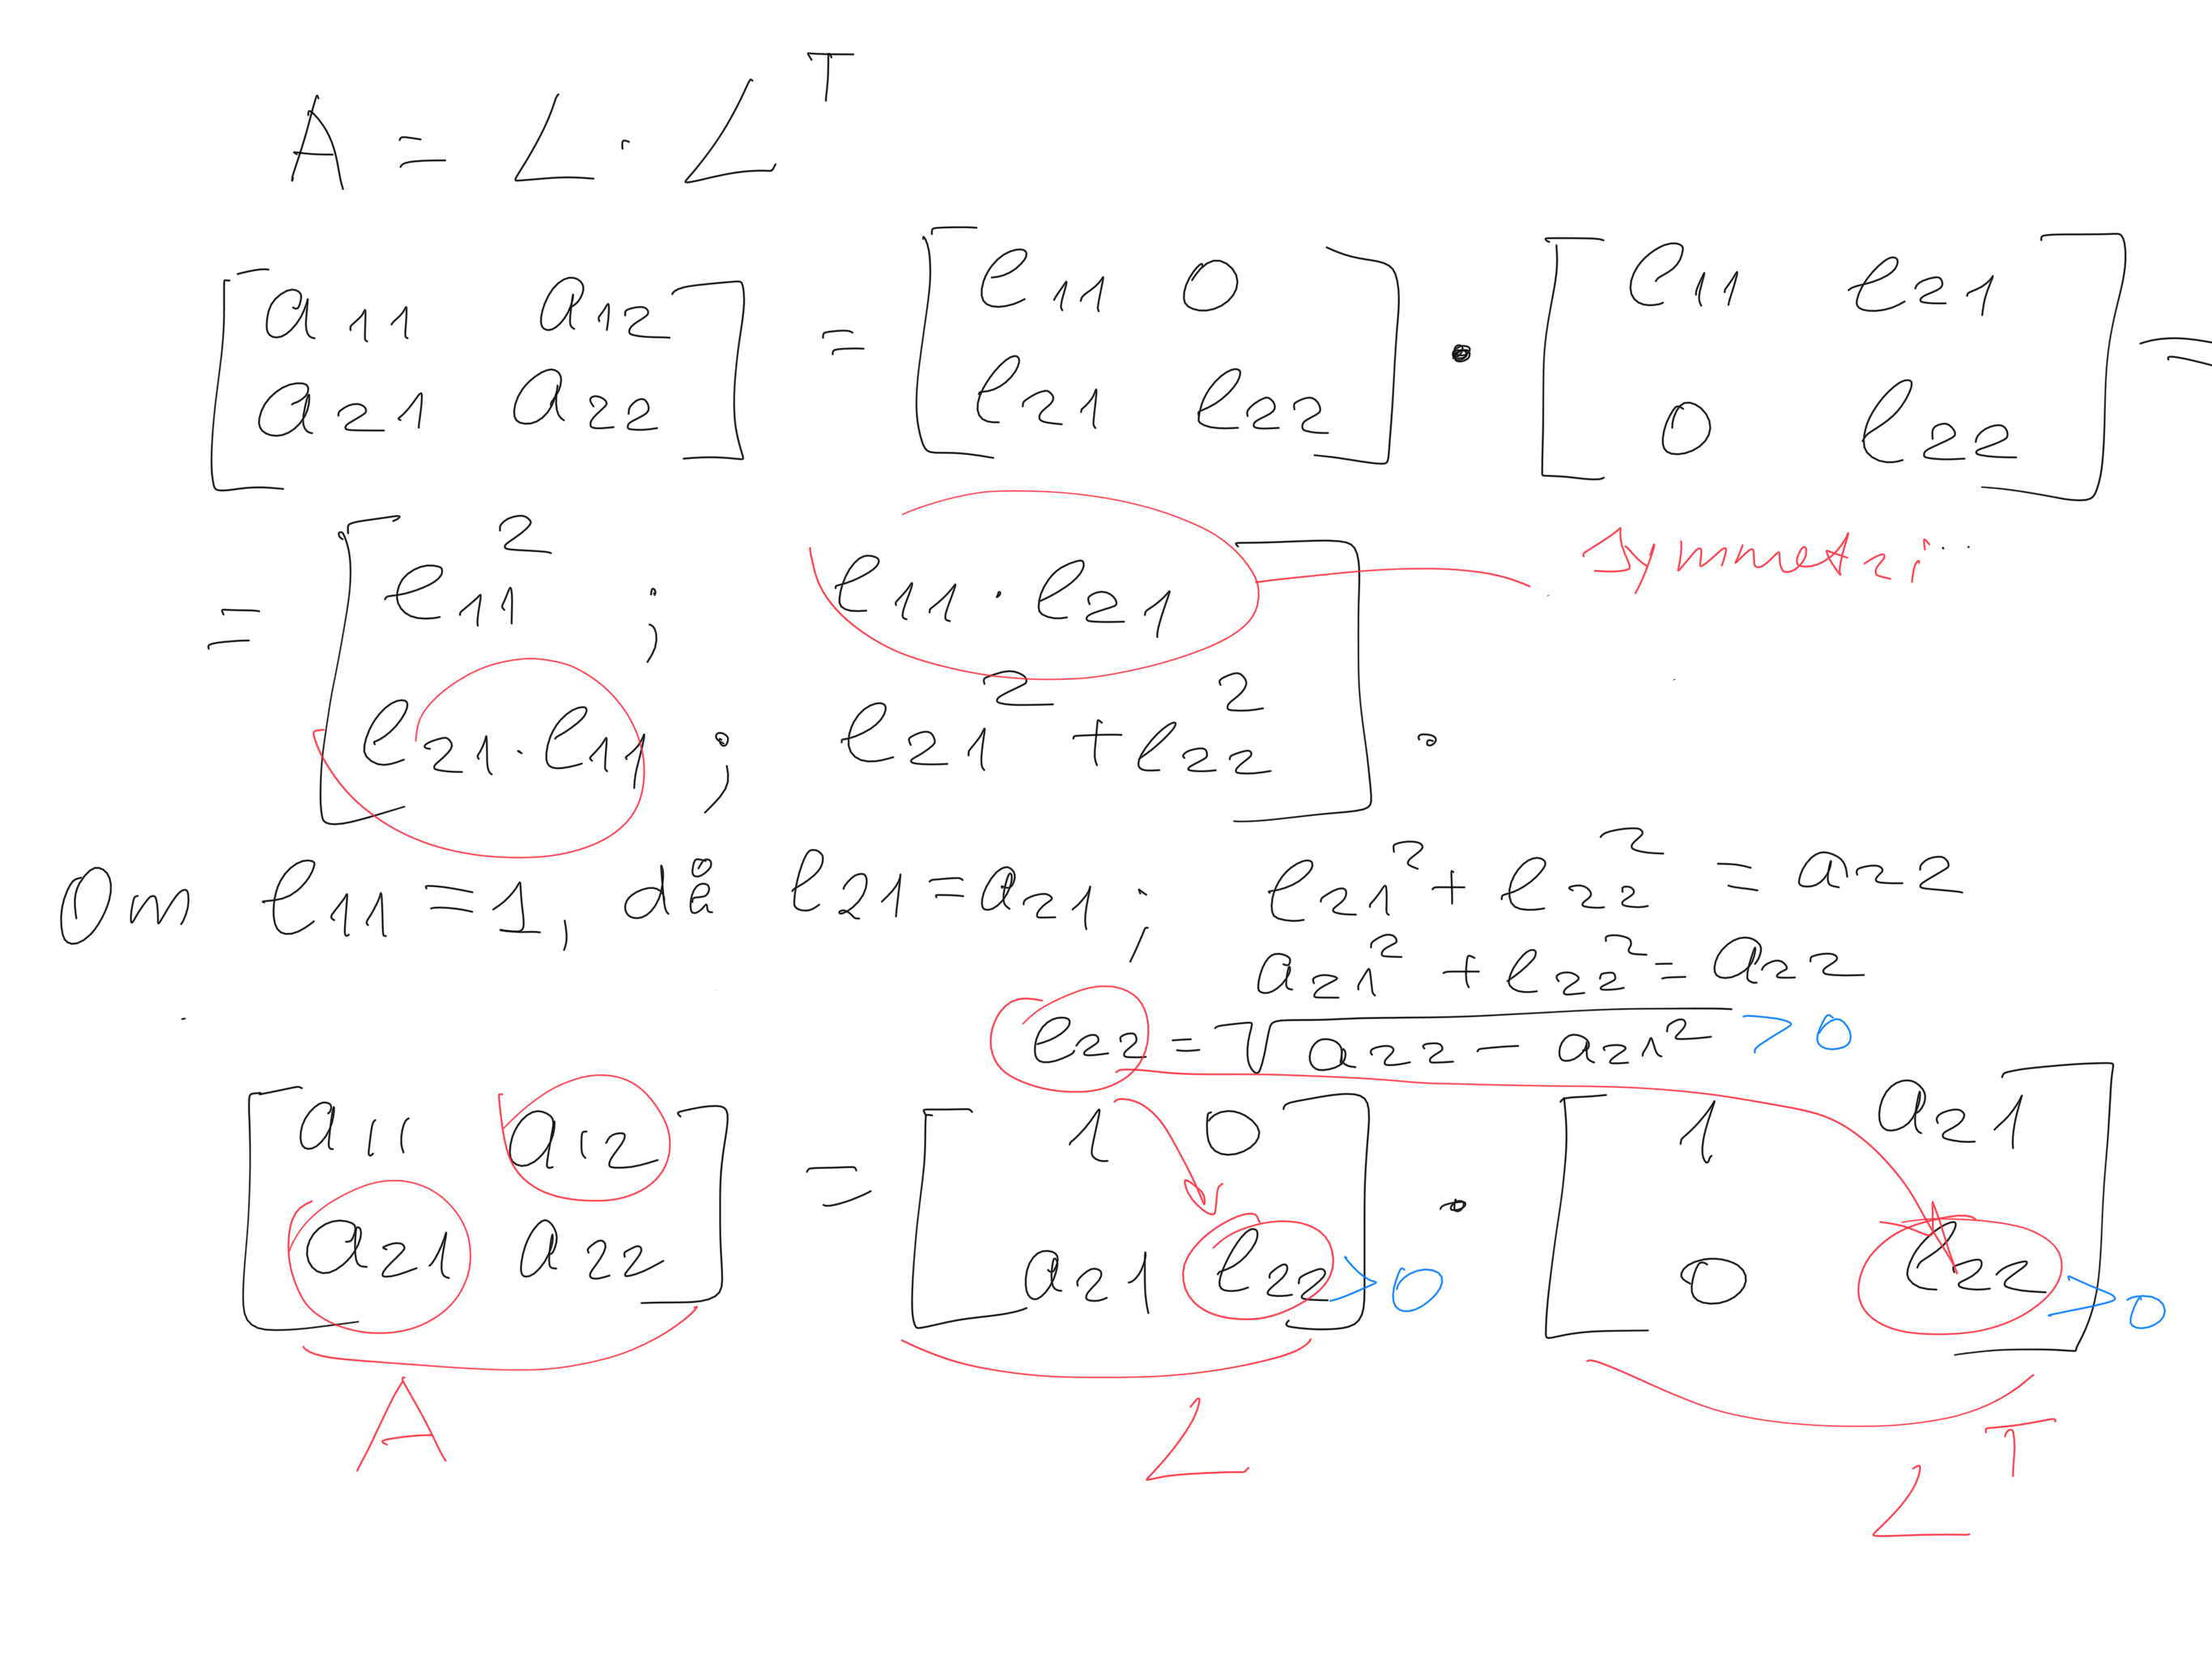 A = L · L^T
[a11 a12; a21 a22] = [l11 0; l21 l22] • [l11 l21; 0 l22] =
= [l11^2 ; l11 · l21
l21 · l11 ; l21^2 + l22^2] .
symmetri
Om l11 = 1, då l21 = a21 ; l21^2 + l22^2 = a22
a21^2 + l22^2 = a22
l22 = √(a22 - a21^2) > 0
[a11 a12; a21 a22] = [1 0; a21 l22 > 0] • [1 a21; 0 l22 > 0]
A L L^T